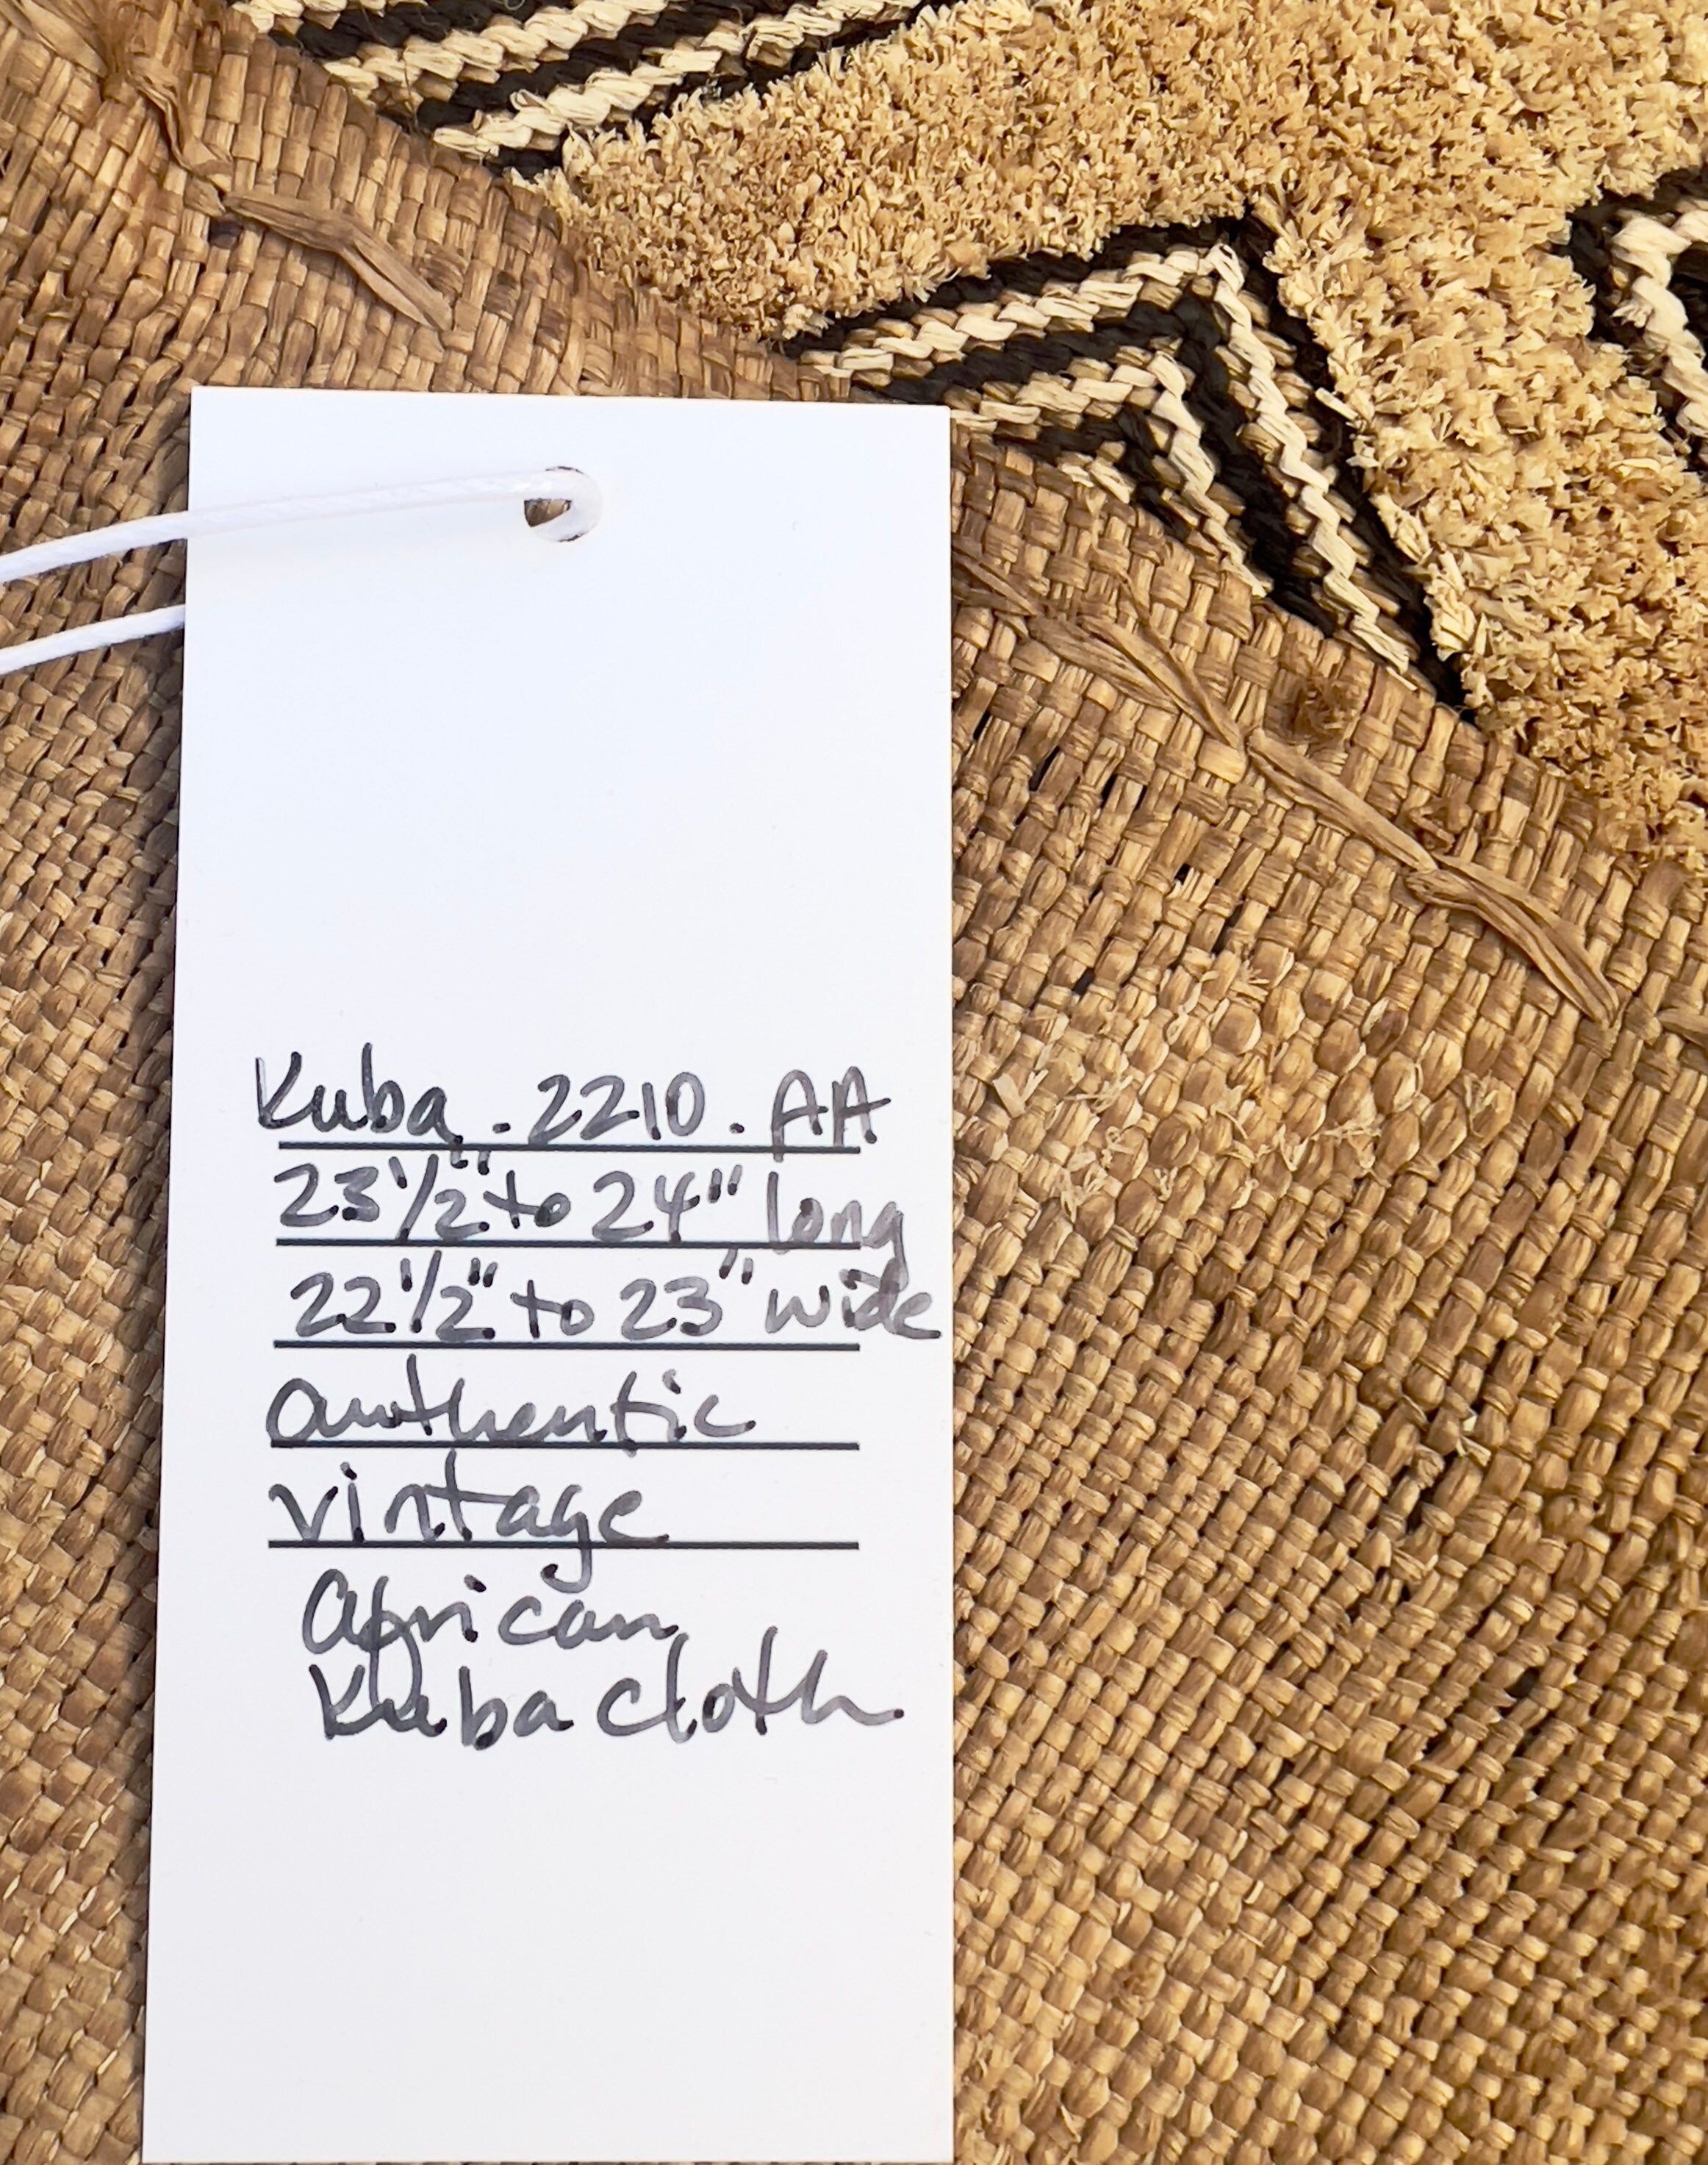 Kuba . 2210 . AA
23 1/2" to 24" long
22 1/2" to 23" wide
authentic
vintage
african
Kuba cloth